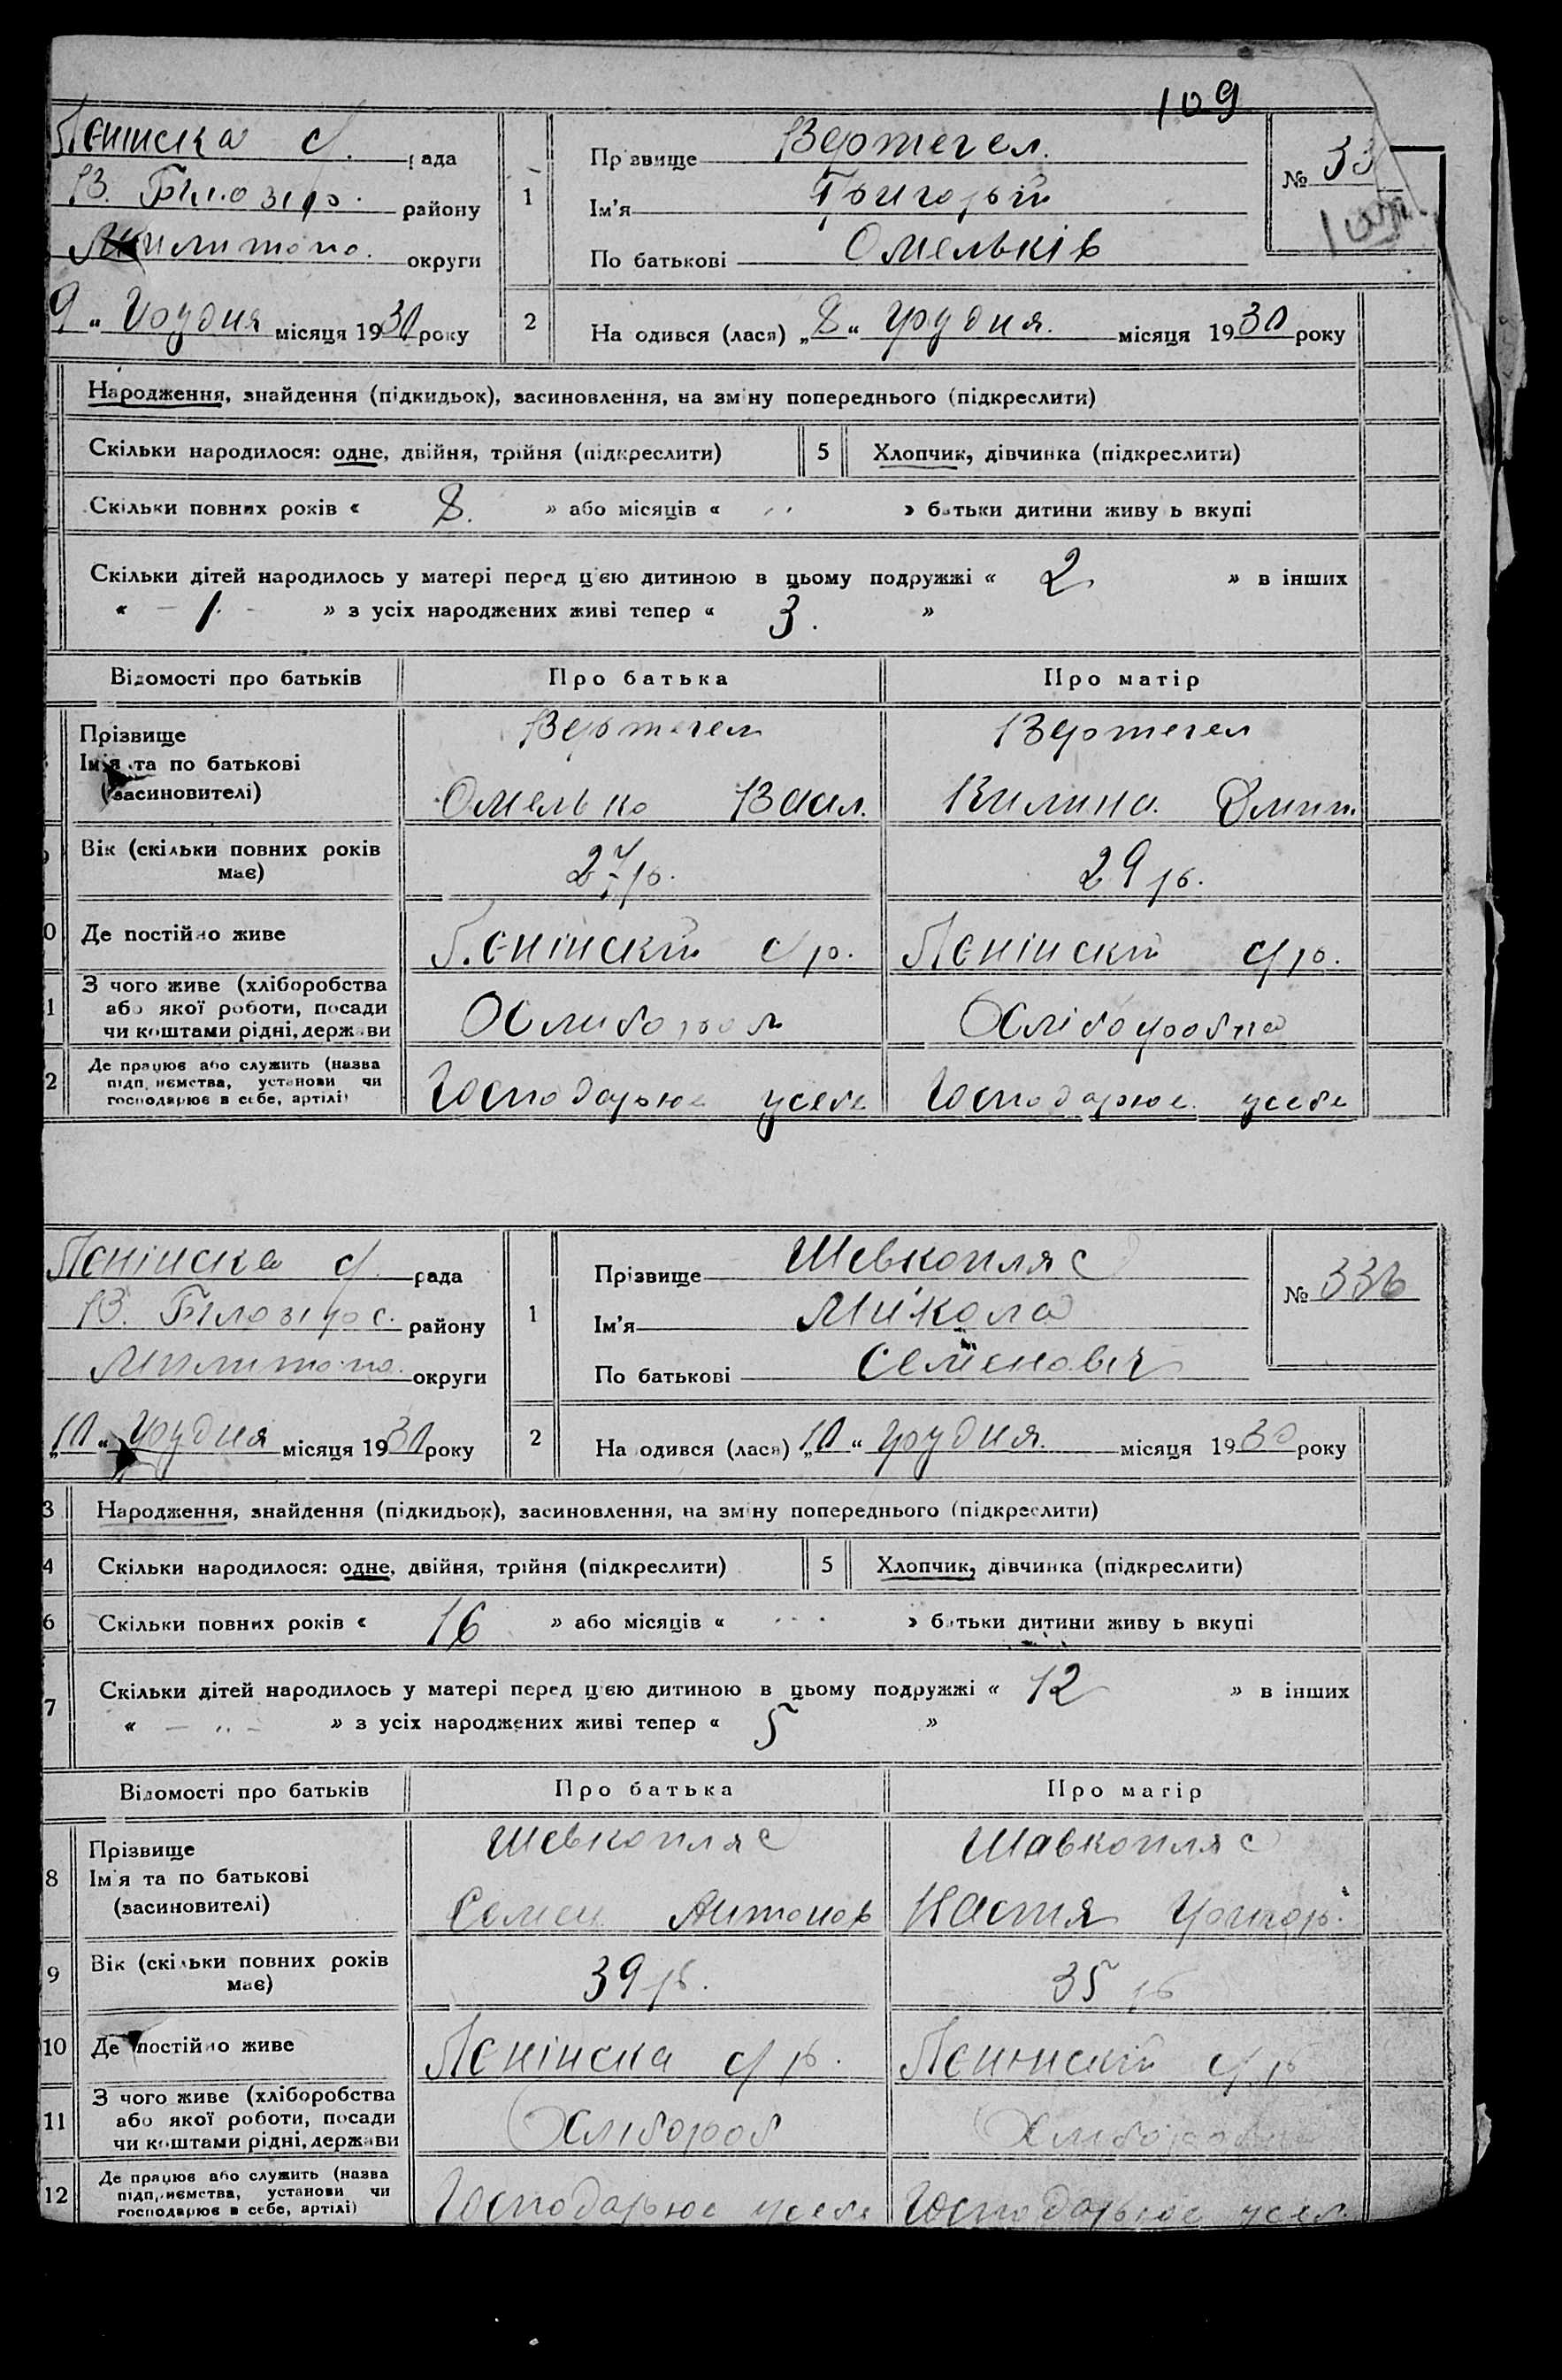 109
Ленінска с/ рада
В. Білозір. району
Милитопо. округи
9 " Грудня місяця 1930 року
1
Прізвище Вертегел.
Ім'я Григорій
По батькові Омельків
№ 33
2
На одився (лася) „8“ Грудня. місяця 1930 року
Народження, знайдення (підкидьок), засиновлення, на зміну попереднього (підкреслити)
Скільки народилося: одне, двійня, трійня (підкреслити) 5 Хлопчик, дівчинка (підкреслити)
Скільки повних років « 8. » або місяців « » батьки дитини живу ь вкупі
Скільки дітей народилось у матері перед цією дитиною в цьому подружжі « 2 » в інших
« - 1. - » з усіх народжених живі тепер « 3. »
Відомості про батьків Про батька Про матір
Прізвище
Ім'я та по батькові
(засиновителі)
Вертегел
Омелько Васил.
Вертегел
Килина Дмит.
Вік (скільки повних років
має)
27 р.
29 р.
0 Де постійно живе
Ленінскій с/р.
Ленінскій с/р.
1 З чого живе (хліборобства
або якої роботи, посади
чи коштами рідні, держави
Хлибороб
Хліборобка
2 Де працює або служить (назва
підп. иємства, установи чи
господарює в себе, артілі)
Господарьює усебе
Господарює усебе
Ленінска с/ рада
В. Білозірс. району
Милитопо. округи
„10“ Грудня місяця 1930 року
1
Прізвище Шевкопляс
Ім'я Микола
По батькові Семенович
№ 336
2
На одився (лася) „10“ Грудня. місяця 1930 року
3 Народження, знайдення (підкидьок), засиновлення, на зміну попереднього (підкреслити)
4 Скільки народилося: одне, двійня, трійня (підкреслити) 5 Хлопчик, дівчинка (підкреслити)
6 Скільки повних років « 16 » або місяців « » батьки дитини живу ь вкупі
7 Скільки дітей народилось у матері перед цією дитиною в цьому подружжі « 12 » в інших
« - - » з усіх народжених живі тепер « 5 »
Відомості про батьків Про батька Про матір
8 Прізвище
Ім'я та по батькові
(засиновителі)
Шевкопляс
Семен Антонов
Шавкопляс
Настя Григор.
9 Вік (скільки повних років
має)
39 р.
35 р
10 Де постійно живе
Ленінска с/р.
Ленінскій с/р
11 З чого живе (хліборобства
або якої роботи, посади
чи коштами рідні, держави
Хлібороб
Хліборобка
12 Де працює або служить (назва
підп. иємства, установи чи
господарює в себе, артілі)
Господарьює усебе
Господарьює усеб.